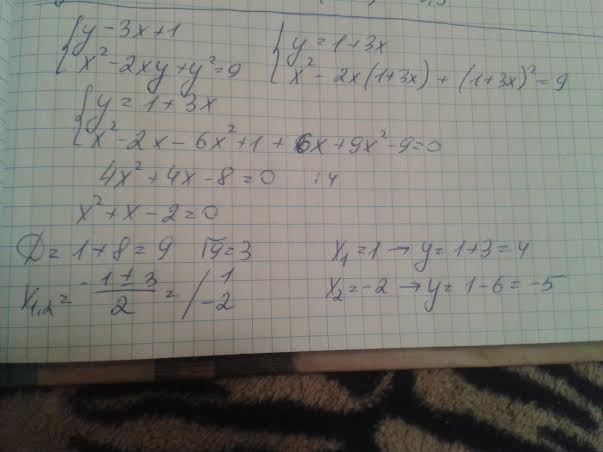 {y - 3x + 1 {y = 1 + 3x
{x² - 2xy + y² = 9 {x² - 2x(1+3x) + (1+3x)² = 9
{y = 1 + 3x
{x² - 2x - 6x² + 1 + 6x + 9x² - 9 = 0
4x² + 4x - 8 = 0 :4
x² + x - 2 = 0
D = 1 + 8 = 9 √9 = 3 x₁ = 1 → y = 1 + 3 = 4
x₁,₂ = (-1 ± 3)/2 = / 1 -2 x₂ = -2 → y = 1 - 6 = -5